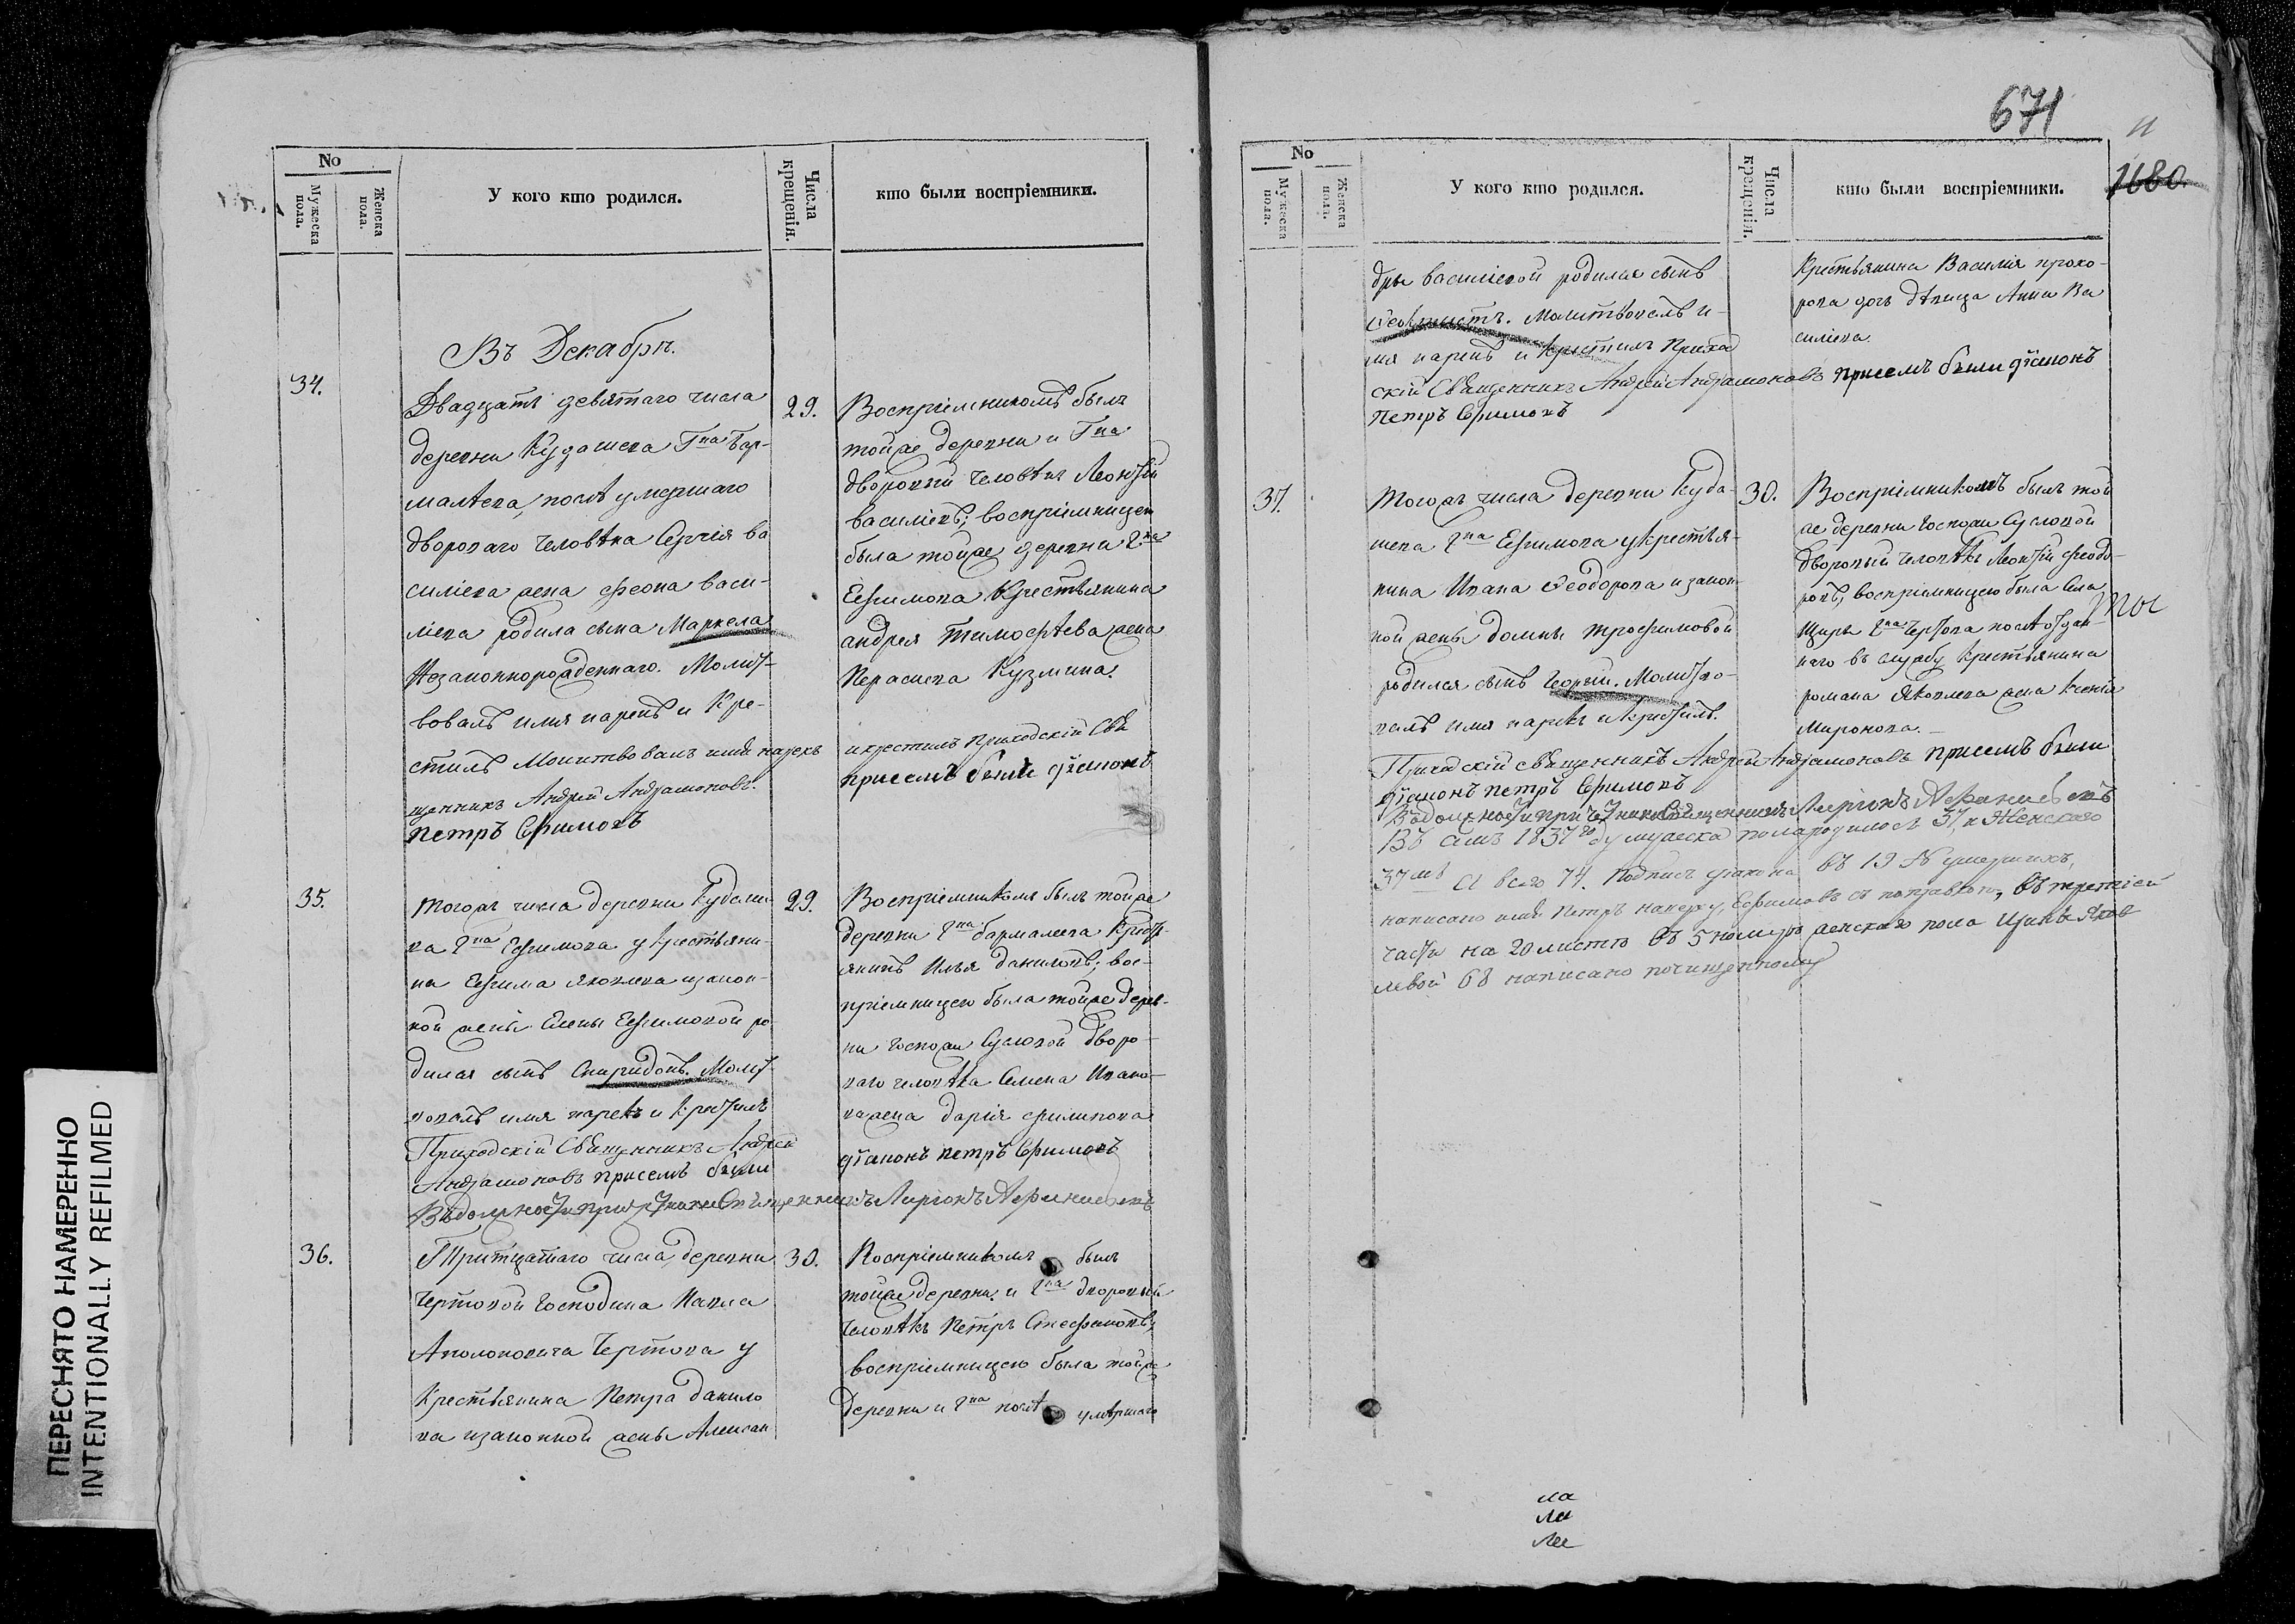 ПЕРЕСНЯТО НАМЕРЕННО
INTENTIONALLY REFILMED
No
Мужеска пола.
Женска пола.
У кого кто родился.
Числа крещенія.
кто были воспріемники.
Въ Декабрѣ.
34.
Двадцать девятаго числа
деревни Кудашева Гна Бар-
малѣева, послѣ умершаго
двороваго человѣка Сергія Ва
силіева жена Феона Васи-
ліева родила сына Маркела
Незаконнорожденнаго. Молит-
вовалъ имя нарекъ и Кре-
стилъ Молитвовалъ имя нарекъ
щенникъ Андрей Андріановъ.
петръ Ефимовъ
29.
Воспріемникомъ былъ
тойже деревни и Гна
дворовый человѣкъ Леонтій
Василіевъ; воспріемницею
была тойже деревни Гна
Ефимова Крестьянина
андрея Тимофѣева жена
Параскева Кузмина.
и крестилъ приходскій Свя
присемъ были діаконъ
35.
Тогожъ числа деревни Кудаше
ва Гна Ефимова у крестьяни-
на Ефима Яковлева изакон-
ной жены Елены Ефимовой ро
дился сынъ Спиридонъ. Молит
вовалъ имя нарекъ и крестилъ
Приходскій Священникъ Андрей
Андріановъ присемъ были
29.
Воспріемникомъ былъ тойже
деревни Гна Бармалеева Крест-
янинъ Илья Даниловъ; вос-
пріемницею была тойже дерев-
ни Госпожи Сусловой Дворо-
ваго человѣка Семена Ивано-
ва жена Дарія Филипова
діаконъ петръ Ефимовъ
Въ должности причетника Священникъ Ларіонъ
36.
Тритцатаго числа, деревни
Чертовой Господина Павла
Аполоновича Чертова у
Крестьянина Петра Данило
ва изаконной жены Алексан
30.
Воспріемникомъ былъ
тойже деревни и Гна дворовый
человѣкъ Петръ Стефановъ;
воспріемницею была тойже
деревни и Гна послѣ умѣршаго
671
11
1680.
No
Мужеска пола.
Женска пола.
У кого кто родился.
Числа крещенія.
кто были воспріемники.
дры Василіевой родился сынъ
Ѳеоктистъ. Молитвовалъ и-
мя нарекъ и Крестилъ Приход
скій Священникъ Андрей Андріановъ присемъ были діаконъ
петръ Ефимовъ
Крестьянина Василія прохо-
рова дочь дѣвица Анна Ва
силіева.
37.
Тогожъ числа деревни Куда-
шева Гна Ефимова укрестья-
нина Ивана Ѳеодорова изакон
ной жены Домны Трофимовой
родился сынъ Георгій. Молитво-
валъ имя нарекъ и крестилъ.
Приходскій священникъ Андрей Андріановъ присемъ были
діаконъ петръ Ефимовъ
Въ должности причетника Священникъ Ларіонъ
30.
Воспріемникомъ былъ той
же деревни Госпожи Сусловой
Дворовый человѣкъ Леонтій Феодо-
ровъ, воспріемницею была Села
Щиры Гна Чертова послѣ отдан
наго въ службу крестьянина
романа Яковлева жена Ксенія
Миронова.
Въ семъ 1837го году мужеска пола родилось 37, и Женскаго
37мь А всего 74. Подпись діакона въ 19 № умершихъ,
написано имя Петръ наверху, Ефимовъ съ поправкою, въ третіей
части на 20 листѣ въ 5 номерѣ женскаго пола Яков
левой 68 написано почищенному
ла
ли
ле